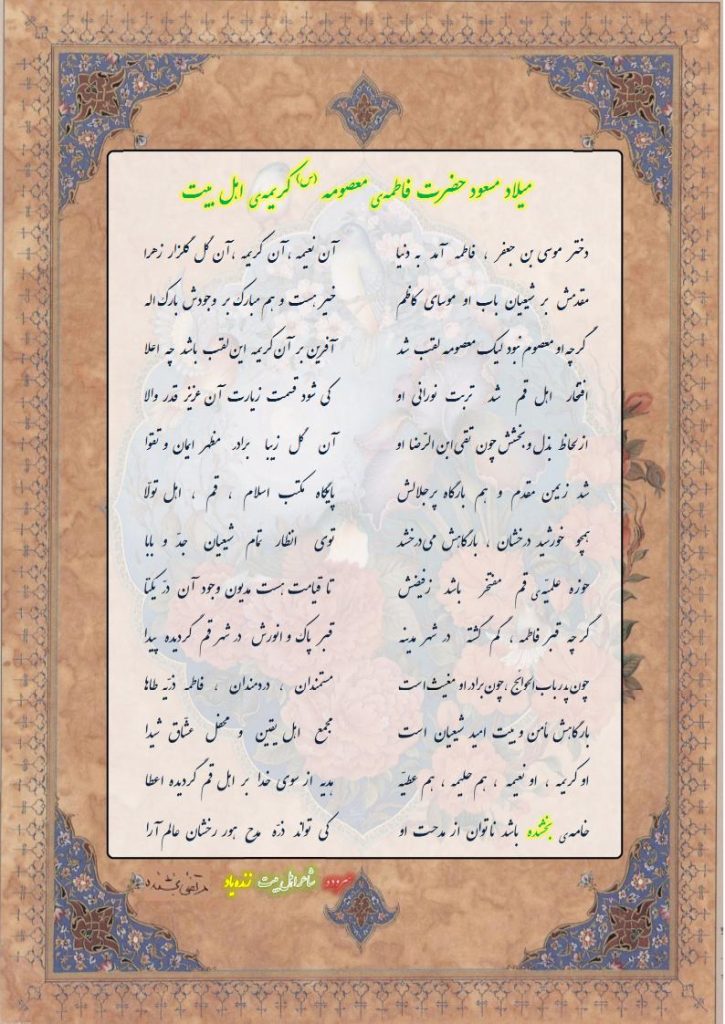 میلاد مسعود حضرت فاطمه‌ی معصومه (س) کریمه‌ی اهل بیت
دختر موسی بن جعفر ، فاطمه آمد به دنیا آن نعیمه ،آن کریمه ،آن گل گلزار زهرا
مقدمش بر شیعیان باب او موسای کاظم خیر هست و هم مبارک بر وجودش بارک اله
گرچه او معصوم نبود لیک معصومه لقب شد آفرین بر آن کریمه این لقب باشد چه اعلا
افتخار اهل قم شد تربت نورانی او کی شود قسمت زیارت آن عزیز قدر والا
از لحاظ بذل و بخشش چون تقی ابن الرّضا او آن گل زیبا برادر مظهر ایمان و تقوا
شد زیمن مقدم و هم بارگاه پرجلالش پایگاه مکتب اسلام ، قم ، اهل تولّا
همچو خورشید درخشان ، بارگاهش می‌درخشد توی انظار تمام شیعیان جدّ و بابا
حوزه علمیّه‌ی قم مفتخر باشد زفیضش تا قیامت هست مدیون وجود آن درّ یکتا
گر چه قبر فاطمه ، گم گشته در شهر مدینه قبر پاک و انورش در شهر قم گردیده پیدا
چون پدر باب الحوائج ،چون برادر او مغیث است مستمندان ، دردمندان ، فاطمه ذریّه طاها
بارگاهش مأمن و بیت امید شیعیان است مجمع اهل یقین و محفل عشّاق شیدا
او کریمه ، او نعیمه ، هم حلیمه ، هم عطیّه هدیه از سوی خدا بر اهل قم گردیده اعطا
خامه‌ی بخشنده باشد ناتوان از مدحت او کی تواند ذرّه مدح هور رخشان عالم آرا
شاعر اهل بیت زنده یاد